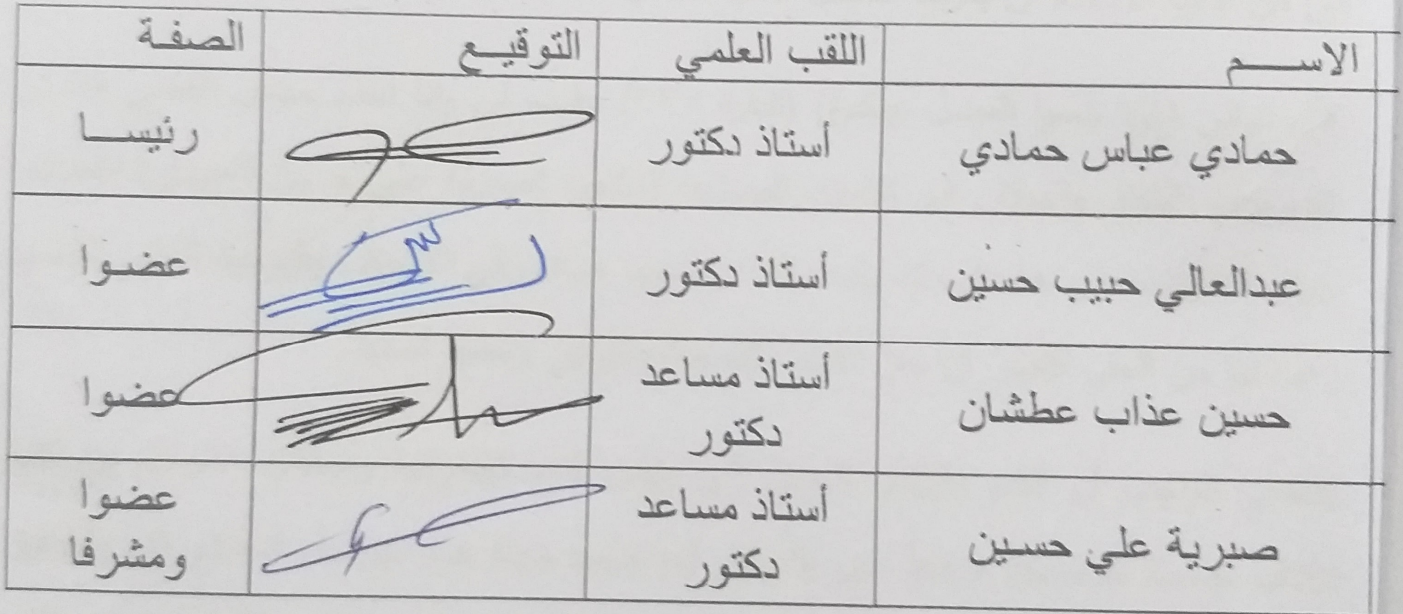 الاســـم اللقب العلمي التوقيـع الصفـة
حمادي عباس حمادي أستاذ دكتور رئيســا
عبدالعالي حبيب حسين أستاذ دكتور عضـوا
حسين عذاب عطشان أستاذ مساعد دكتور عضوا
صبرية علي حسين أستاذ مساعد دكتور عضوا ومشرفا